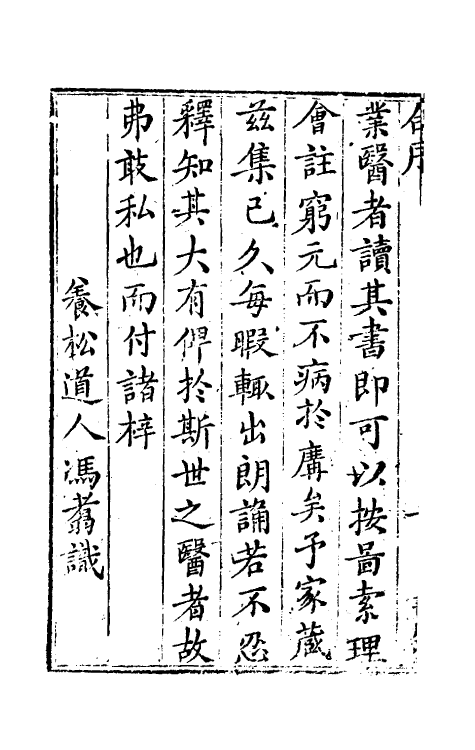 業醫者讀其書即可以按啚索理
會註窮元而不病扵庸矣予家藏
兹集已久每暇輙出朗誦若不忍
釋知其大有俾扵斯世之醫者故
弗敢私也而付諸梓
養松道人馮翥識